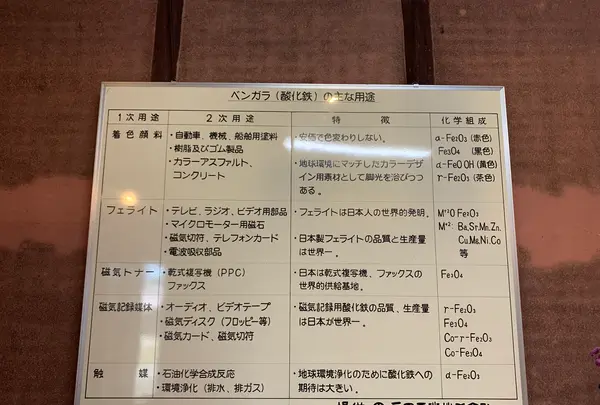 ベンガラ（酸化鉄）の主な用途
1次用途 2次用途 特徴 化学組成
着色顔料 ・自動車、機械、船舶用塗料 ・安価で色変わりしない。 α-Fe₂O₃（赤色）
・樹脂及びゴム製品 Fe₃O₄（黒色）
・カラーアスファルト、 ・地球環境にマッチしたカラーデザ α-FeOOH（黄色）
コンクリート イン用素材として脚光を浴びつつ r-Fe₂O₃（茶色）
ある。
フェライト ・テレビ、ラジオ、ビデオ用部品 ・フェライトは日本人の世界的発明。 M⁺²O Fe₂O₃
・マイクロモーター用磁石 M⁺²: Ba,Sr,Mn,Zn,
・磁気切符、テレフォンカード ・日本製フェライトの品質と生産量 Cu,Mg,Ni,Co
・電波吸収部品 は世界一。 等
磁気トナー ・乾式複写機（PPC） ・日本は乾式複写機、ファックスの Fe₃O₄
ファックス 世界的供給基地。
磁気記録媒体 ・オーディオ、ビデオテープ ・磁気記録用酸化鉄の品質、生産量 r-Fe₂O₃
・磁気ディスク（フロッピー等） は日本が世界一。 Fe₃O₄
・磁気カード、磁気切符 Co-r-Fe₂O₃
Co-Fe₃O₄
触媒 ・石油化学合成反応 ・地球環境浄化のために酸化鉄への α-Fe₂O₃
・環境浄化（排水、排ガス） 期待は大きい。